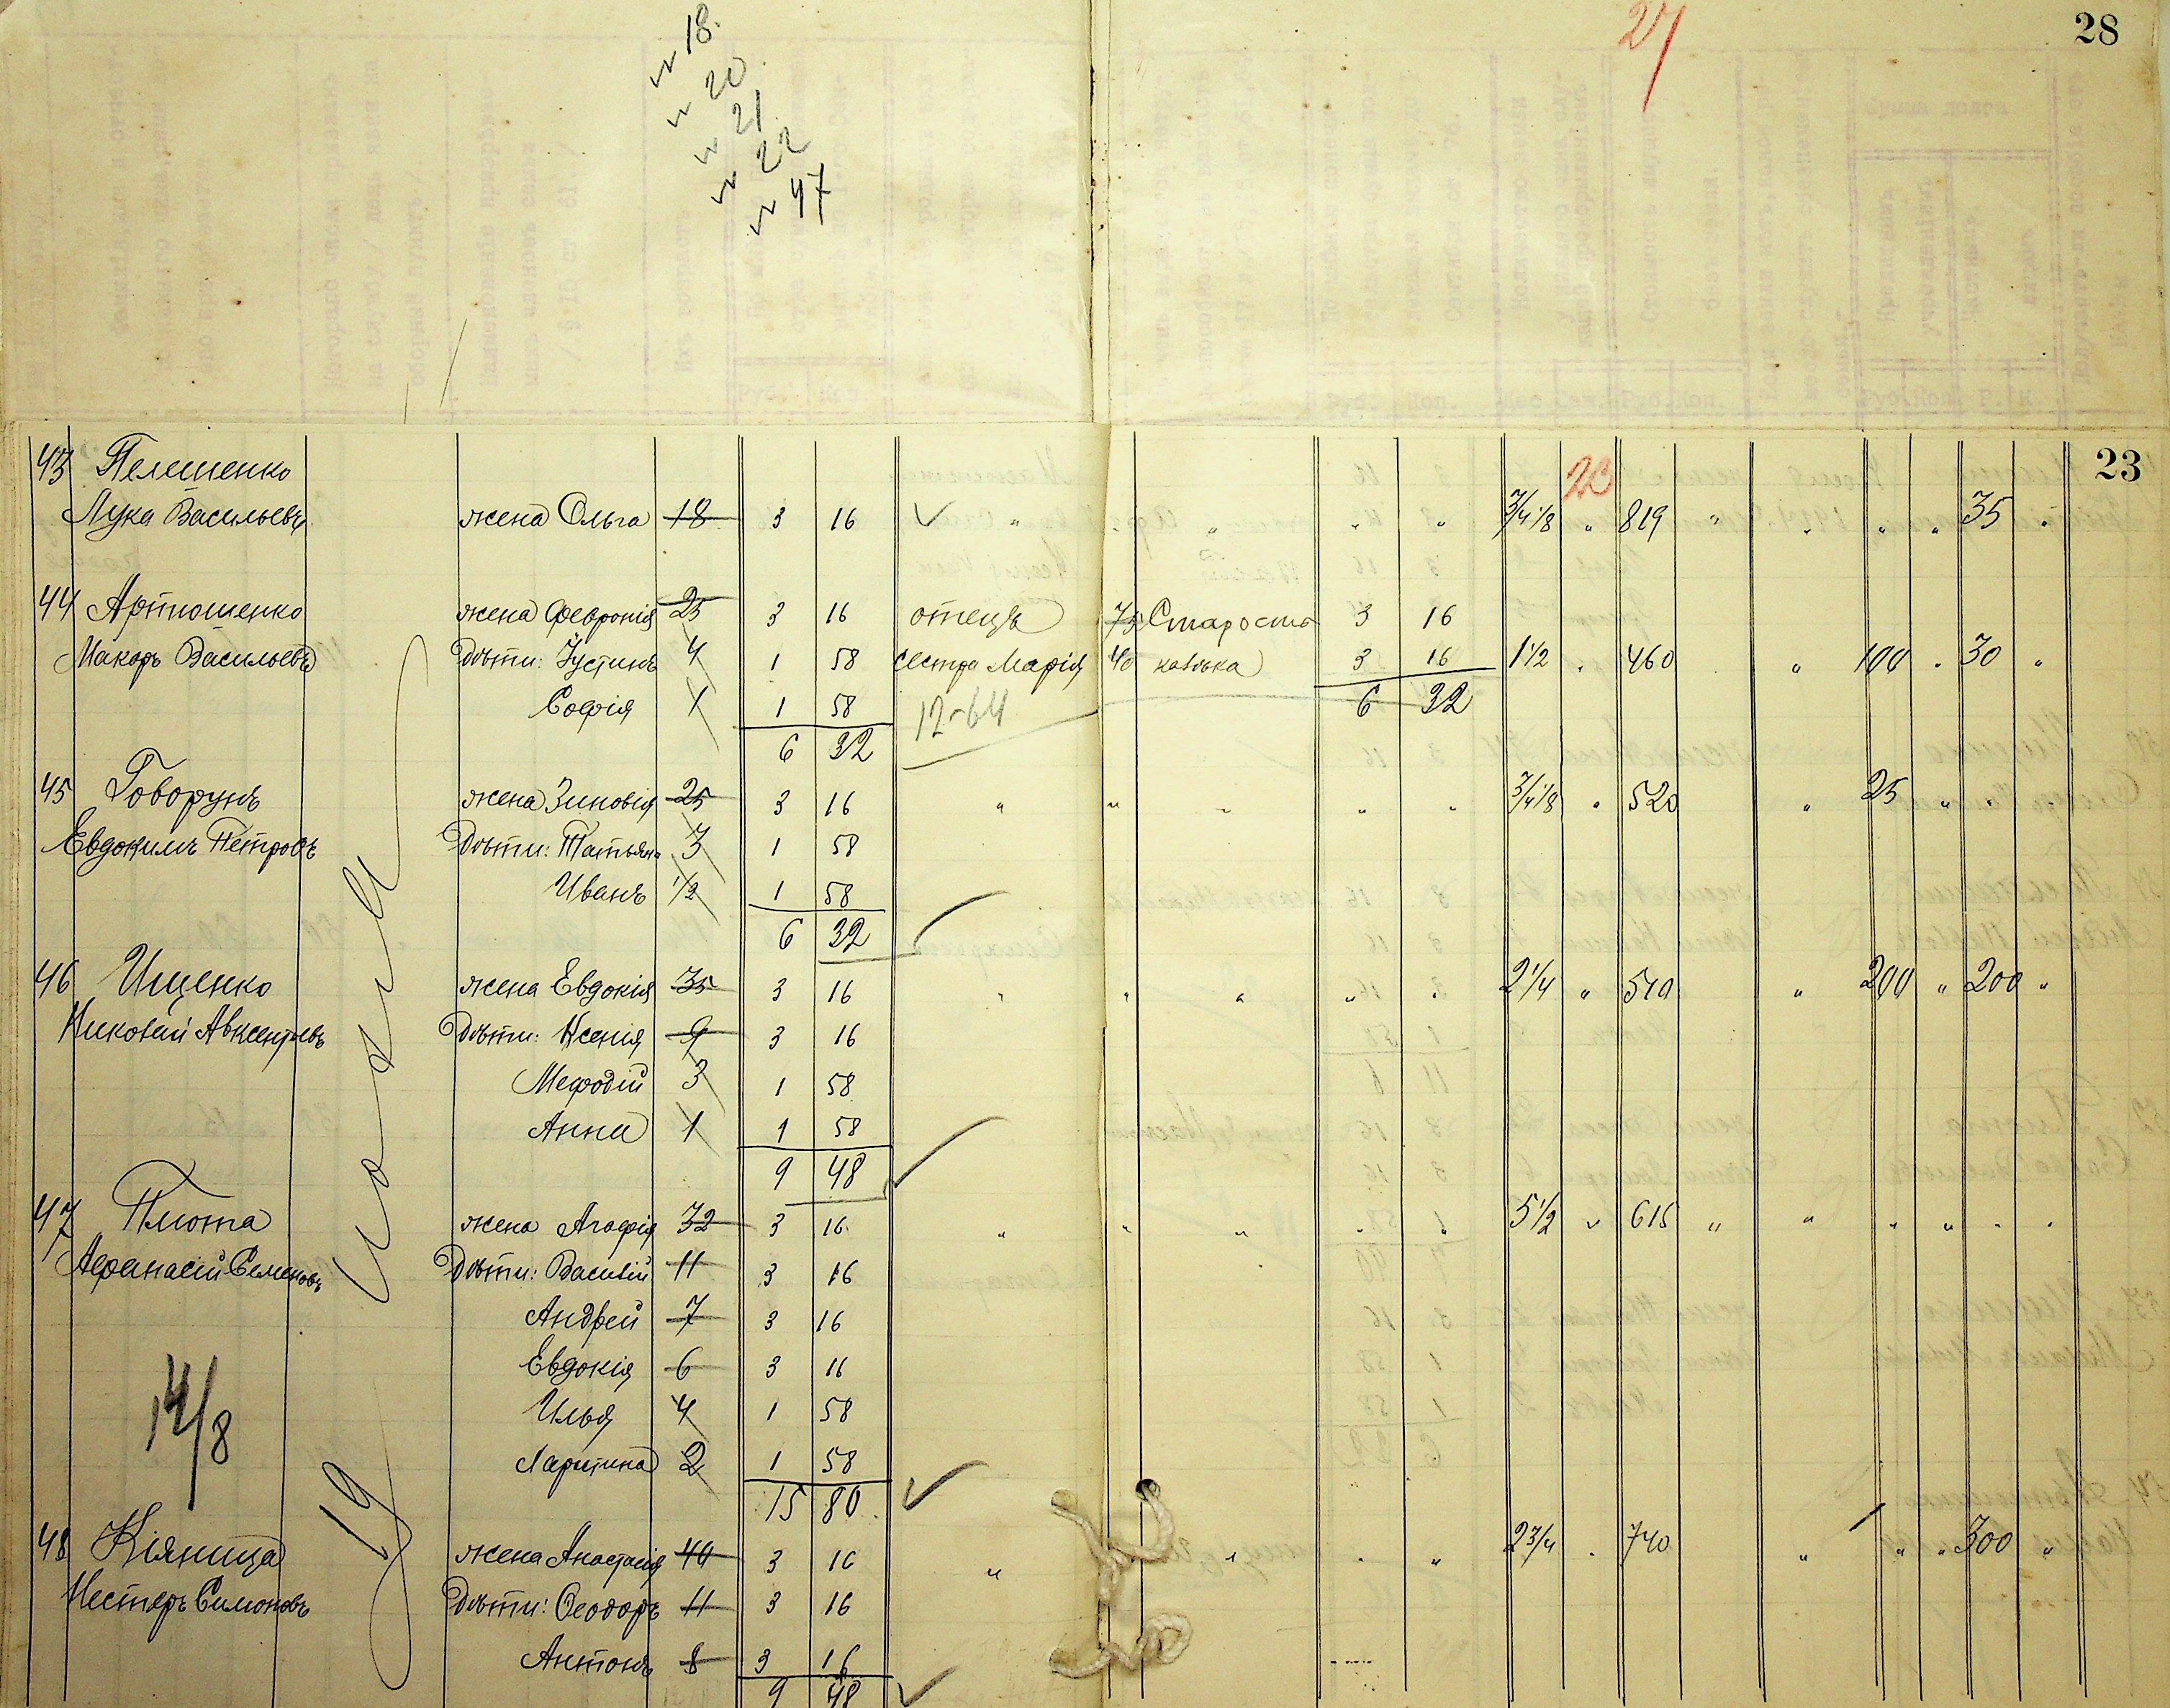 28
27
18.
20
21
22
47
23
43 Пелешенко
23
Лука Васильевъ жена Ольга 18 3 16 " " " " " 3/4 1/8 " 819 " " " " 35 "
44 Артюшенко жена Февронія 25 3 16 отецъ 75 Старость 3 16
Макаръ Васильевъ Дѣти: Іустинъ 4 1 58 сестра Марія 40 калѣка 3 16 1 1/2 " 460 " 100 " 30 "
Софія 1 1 58 12-64 6 32
6 32
45 Говорунъ жена Зиновія 25 3 16 " " " " " 3/4 1/8 " 520 " 25 " " "
Евдокимъ Петровъ Дѣти: Татьяна 3 1 58
Иванъ 1/2 1 58
6 32
46 Ищенко жена Евдокія 35 3 16 " " " " " 2 1/4 " 510 " 200 " 200 "
Николай Авксентьевъ Дѣти: Ксенія 9 3 16
Мефодій 3 1 58
Анна 1 1 58
9 48
47 Плюта жена Агафія 32 3 16 " " " " " 5 1/2 " 615 " " " " " "
Афанасій Семеновъ Дѣти: Василій 11 3 16
Андрей 7 3 16
Евдокія 6 3 16
14/8
Илья 4 1 58
2 1 58
15 80
19
48 Кіяница жена Анастасія 40 3 16 " " " " 2 3/4 " 740 " " " 300 "
Несторъ Симоновъ Дѣти: Ѳеодоръ 11 3 16
Антонъ 8 3 16
9 48